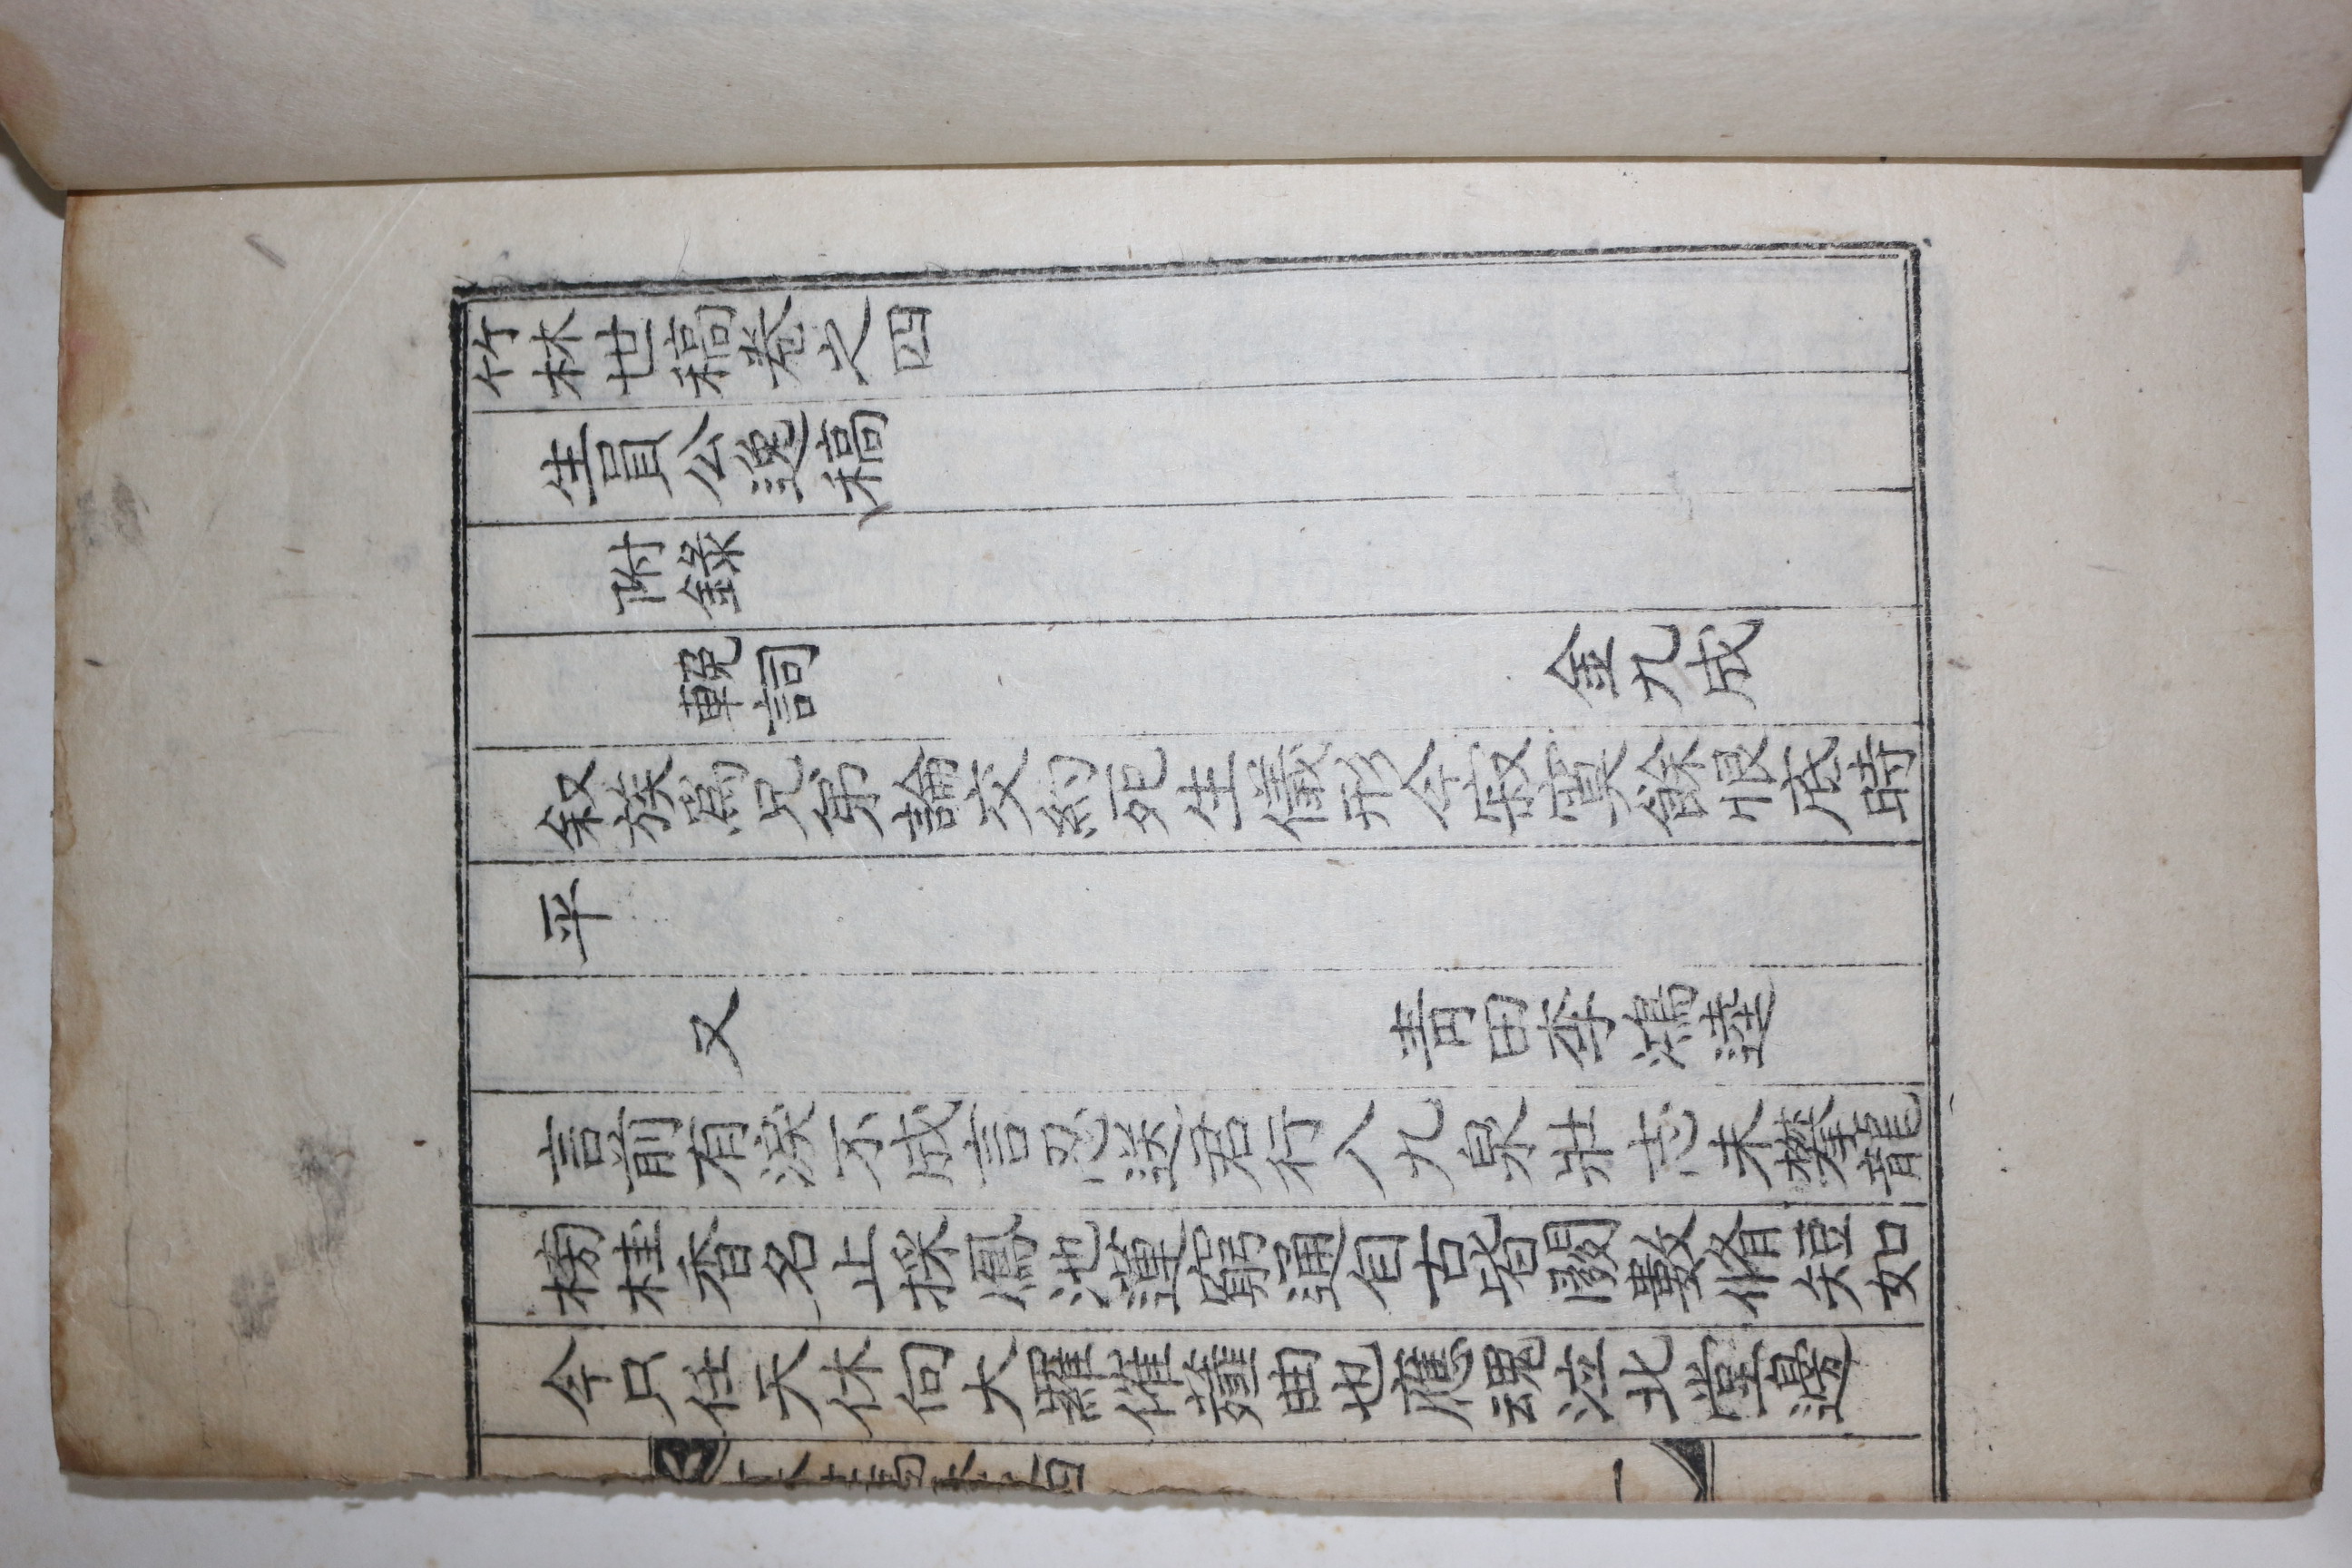 竹林世稿卷之四
生員公逸稿
附錄
輓詞 金九成
叙族爲兄弟論交約死生儀形今寂寞餘恨底時
平
又 靑田李鴻逵
言前有淚不成言忍送君行入九泉壯志未攀龍
榜桂香名止採鳳池蓮窮通自古皆關數脩短如
今只任天休向大羅催薤曲也應魂泣北堂邊
一